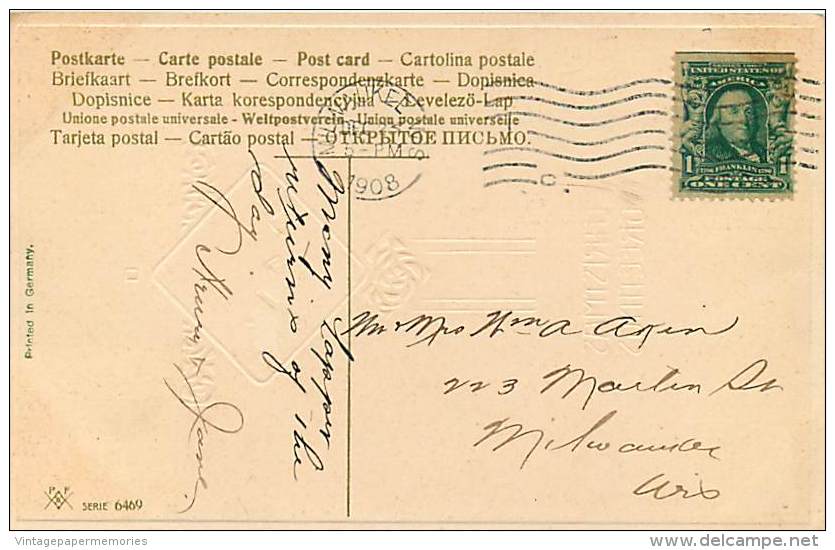 Postkarte — Carte postale — Post card — Cartolina postale
Briefkaart — Brefkort — Correspondenzkarte — Dopisnica
Dopisnice — Karta korespondencyjna — Levelező-Lap
Unione postale universale - Weltpostverein - Union postale universelle
Tarjeta postal — Cartão postal — ОТКРЫТОЕ ПИСЬМО.
MILWAUKEE, WIS
5-PM
1908
UNITED STATES OF
AMERICA
1 FRANKLIN 1
POSTAGE
ONE CENT
Many happy
returns of the
day.
Henry & Jane.
Mr & Mrs Wm A Akin
223 Martin St
Milwaukee
Wis
Printed in Germany.
P F
SERIE 6469
Vintagepapermemories
delcampe.net